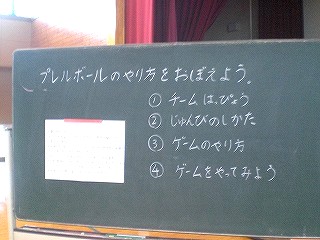 プレルボールのやり方をおぼえよう。
① チームはっぴょう
② じゅんびのしかた
③ ゲームのやり方
④ ゲームをやってみよう